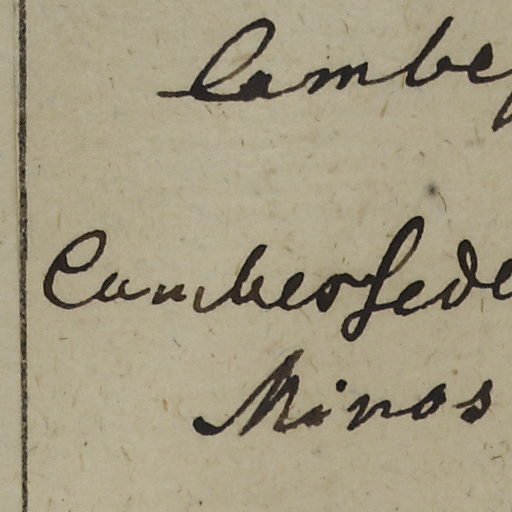 Cambe
Cumbersede
Minos